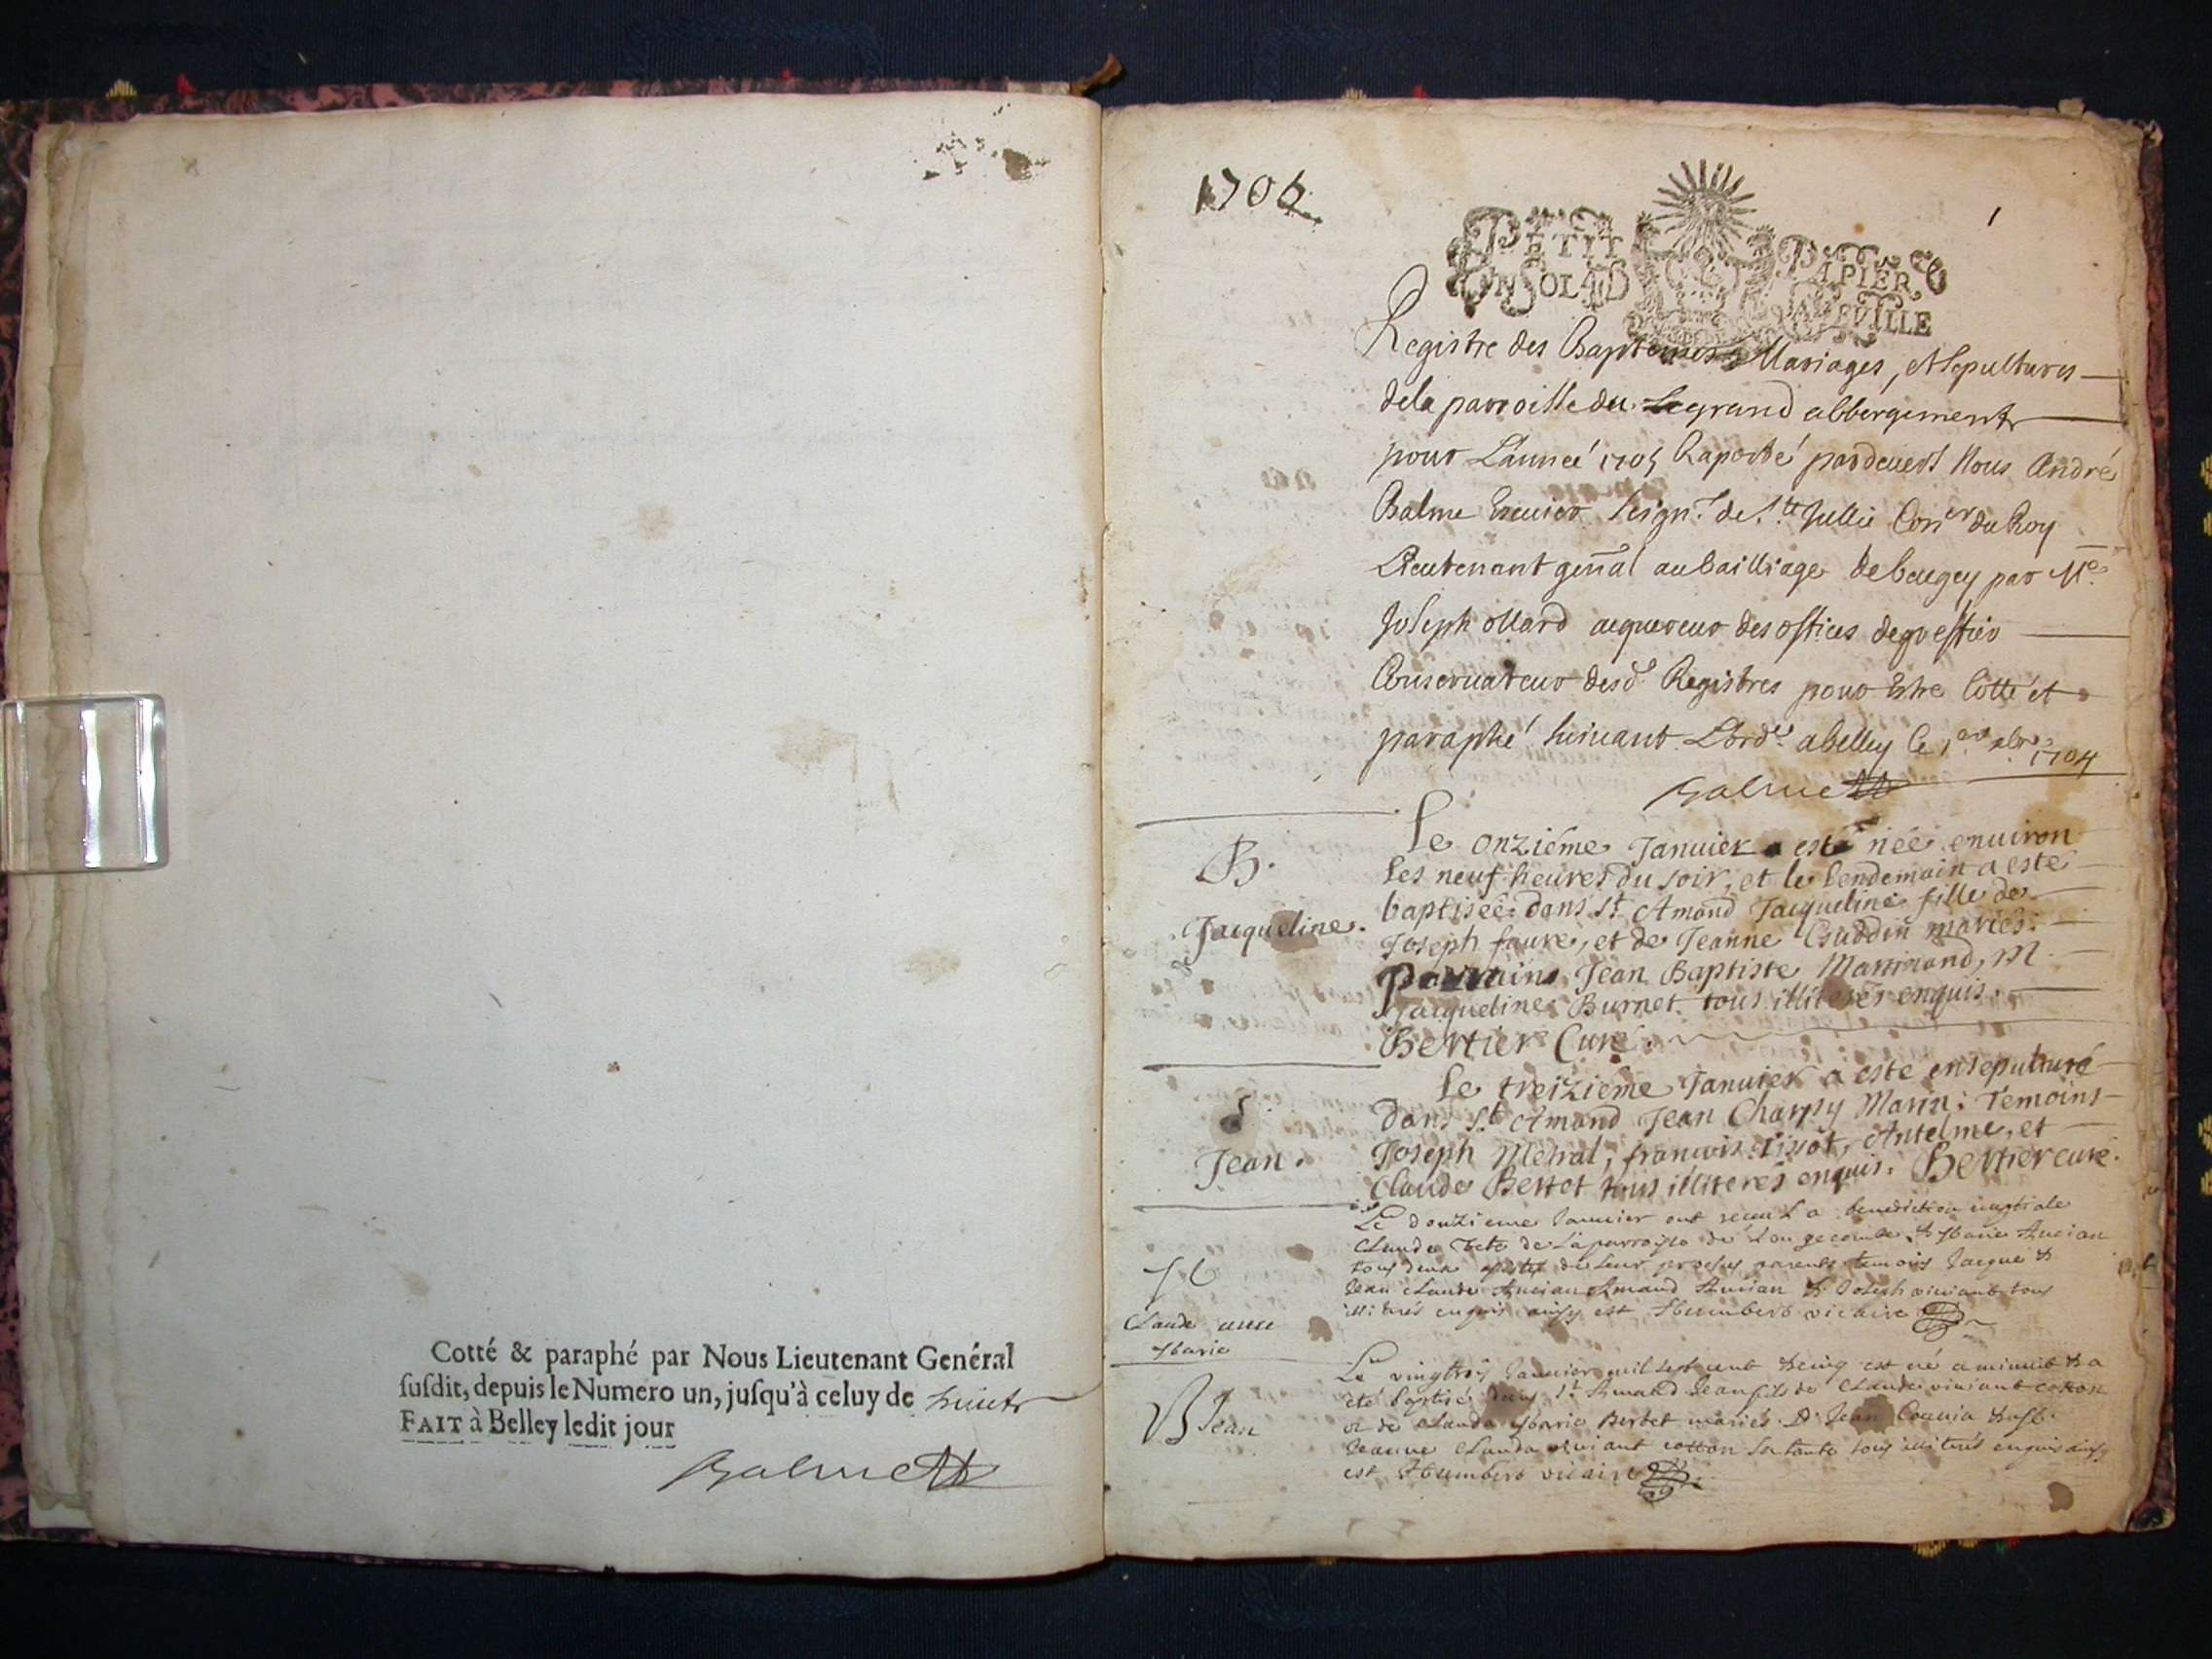 Cotté & paraphé par Nous Lieutenant Genéral
susdit, depuis le Numero un, jusqu'à celuy de huict
FAIT à Belley ledit jour
Balme
1705
1
PETIT PAPIER
UN SOL
Registre des Baptesmes Mariages, et sepultures
dela parroisse du Le grand abbergement
pour L'anneé 1705 Raporté pardevert Nous André
Balme Escuier seignr de Ste Jullie Coner du Roy
Lieutenant genal au bailliage de beugey par Me
Joseph ollard aquereur des offices de greffier
Conservateur desd Registres pour Estre Cotté et
paraphé suivant L'orde a belley le 1er xbre 1704
Balme
B.
Jacqueline.
Le onziéme Januier a esté neé enuiron
les neuf heures du soir, et le lendemain a esté
baptiseé dans st Amand Jacqueline fille de
Joseph faure, et de Jeanne mariés.
Parrains Jean Baptiste Martinand, M.
Jacqueline Burnet tous illiterés enquis.
Bertier Curé.
S
Jean.
Le treiziéme Januier a esté ensepulturé
dans st Amand Jean Charpy Marin; Témoins
Joseph Metral, francois Tissot, Antelme, et
Claude Bertet tous illiterés enquis. Bertier curé.
Claude
Marie
Le douzieme Januier ont receu La benediction nuptiale
Claude de La parroisse de & Marie Ancian
tous deux de leur parents temoins Jacque &
Jean Claude Ancian Armand Ancian & Joseph viviant tous
illiterés enquis ainsy est Humbert vicaire
B Jean
Le vingtrois Januier mil sept cent & cinq est né a minuit & a
été baptisé dans st Amand Jean fils de Claude viviant cotton
et de Claude Marie Bertet mariés. P. Jean
Jeanne Clauda viviant cotton sa tante tous illiterés enquis ainsy
est Humbert vicaire